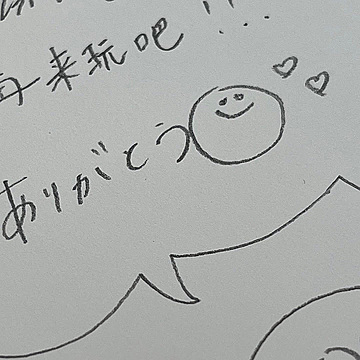 来玩吧!!...
ありがとう